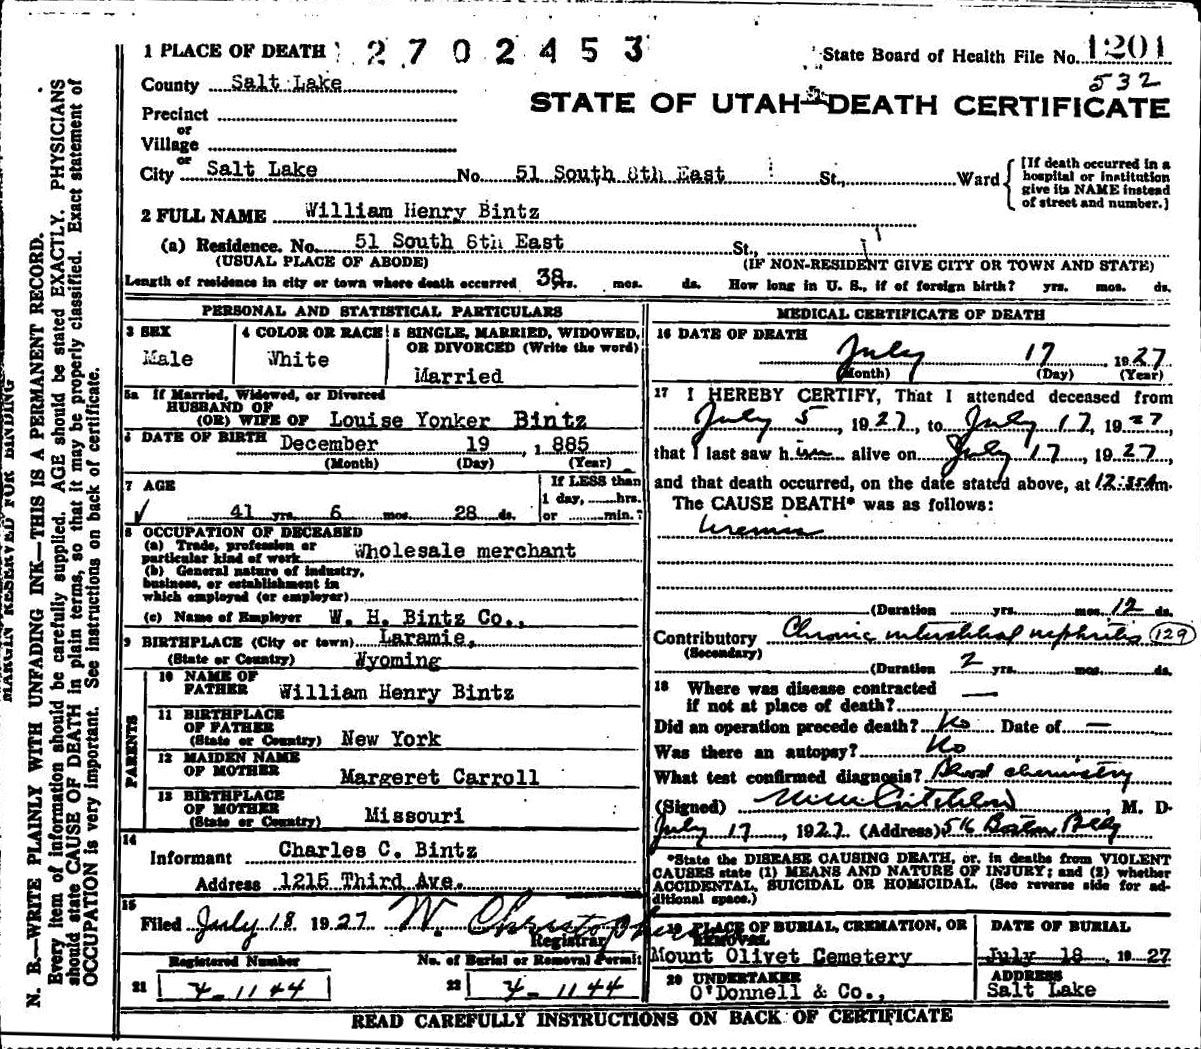 1 PLACE OF DEATH 2 7 0 2 4 5 3 State Board of Health File No. 1201
532
County Salt Lake
STATE OF UTAH—DEATH CERTIFICATE
Precinct
or
Village
or
City Salt Lake No. 51 South 8th East St., Ward
[If death occurred in a
hospital or institution
give its NAME instead
of street and number.]
2 FULL NAME William Henry Bintz
(a) Residence. No. 51 South 8th East St.,
(USUAL PLACE OF ABODE) (IF NON-RESIDENT GIVE CITY OR TOWN AND STATE)
Length of residence in city or town where death occurred 38 yrs. mos. ds. How long in U. S., if of foreign birth? yrs. mos. ds.
PERSONAL AND STATISTICAL PARTICULARS
3 SEX
Male
4 COLOR OR RACE
White
5 SINGLE, MARRIED, WIDOWED,
OR DIVORCED (Write the word)
Married
5a If Married, Widowed, or Divorced
HUSBAND OF
(OR) WIFE OF Louise Yonker Bintz
6 DATE OF BIRTH December 19 , 1 885
(Month) (Day) (Year)
7 AGE
41 yrs. 6 mos. 28 ds.
If LESS than
1 day, hrs.
or min.?
8 OCCUPATION OF DECEASED
(a) Trade, profession or
particular kind of work Wholesale merchant
(b) General nature of industry,
business, or establishment in
which employed (or employer)
(c) Name of Employer W. H. Bintz Co.,
9 BIRTHPLACE (City or town) Laramie,
(State or Country) Wyoming
PARENTS
10 NAME OF
FATHER William Henry Bintz
11 BIRTHPLACE
OF FATHER
(State or Country) New York
12 MAIDEN NAME
OF MOTHER Margeret Carroll
13 BIRTHPLACE
OF MOTHER
(State or Country) Missouri
14
Informant Charles C. Bintz
Address 1215 Third Ave.
15
Filed July 18 1927. W. Christopherson
Registrar
Registered Number No. of Burial or Removal Permit
21 4-1144 22 4-1144
MEDICAL CERTIFICATE OF DEATH
16 DATE OF DEATH
July 17 , 1927
(Month) (Day) (Year)
17 I HEREBY CERTIFY, That I attended deceased from
July 5, 1927, to July 17, 1927,
that I last saw him alive on July 17, 1927,
and that death occurred, on the date stated above, at 12:35Am.
The CAUSE DEATH* was as follows:
Uremia
(Duration yrs. mos. 12 ds.
Contributory Chronic interstitial nephritis 129
(Secondary)
(Duration 2 yrs. mos. ds.
18 Where was disease contracted
if not at place of death? —
Did an operation precede death? No Date of —
Was there an autopsy? No
What test confirmed diagnosis? Blood chemistry
(Signed) , M. D.
July 17, 1927. (Address) 516 Boston Bldg
*State the DISEASE CAUSING DEATH, or, in deaths from VIOLENT
CAUSES state (1) MEANS AND NATURE OF INJURY; and (2) whether
ACCIDENTAL, SUICIDAL OR HOMICIDAL. (See reverse side for ad-
ditional space.)
19 PLACE OF BURIAL, CREMATION, OR
REMOVAL
Mount Olivet Cemetery
DATE OF BURIAL
July 18, 1927
20 UNDERTAKER
O'Donnell & Co.,
ADDRESS
Salt Lake
READ CAREFULLY INSTRUCTIONS ON BACK OF CERTIFICATE
MARGIN RESERVED FOR BINDING
N. B.—WRITE PLAINLY WITH UNFADING INK—THIS IS A PERMANENT RECORD.
Every item of information should be carefully supplied. AGE should be stated EXACTLY. PHYSICIANS
should state CAUSE OF DEATH in plain terms, so that it may be properly classified. Exact statement of
OCCUPATION is very important. See instructions on back of certificate.